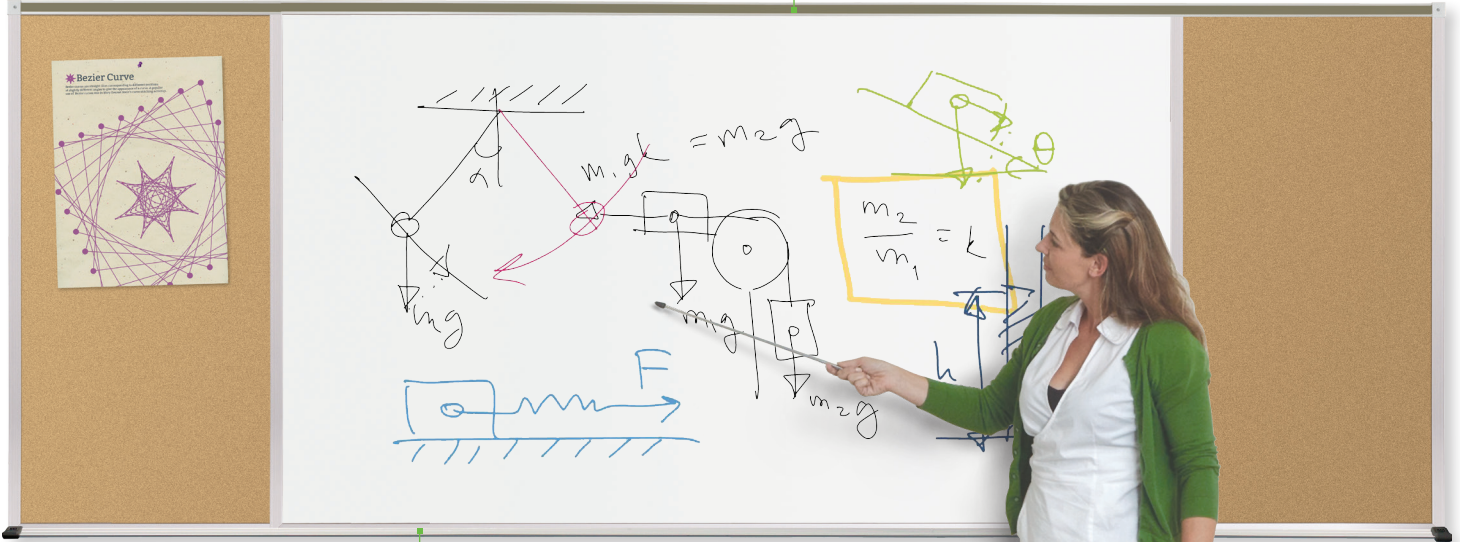 Bezier Curve
α
mg
m₁gk = m₂g
m₁g
m₂g
F
m₂
m₁
= k
θ
h